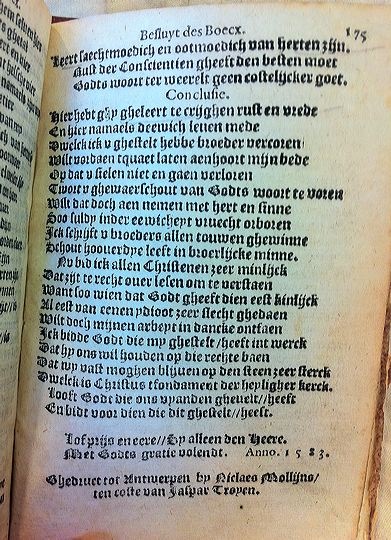 Besluyt des Boecx. 175
Leert saechtmoedich en ootmoedich van herten zijn.
Rust der Conscientien gheeft den besten moet
Godts woort ter weerelt geen costelijcker goet.
Conclusie.
Hier hebt ghy gheleert te crijghen rust en vrede
En hier namaels deewich leuen mede
Dwelck ick v ghestelt hebbe broeder vercoren
Wilt vordaen tquaet laten aenhoort mijn bede
Op dat v sielen niet en gaen verloren
Twort v ghewaerschout van Godts woort te voren
Wilt dat doch aen nemen met hert en sinne
Soo suldy inder eewicheyt vruecht orboren
Ick schrijft v broeders allen touwen ghewinne
Schout hoouerdye leeft in broerlijcke minne.
Nv bid ick allen Christenen zeer minlijck
Dat zijt te recht ouer lesen om te verstaen
Want soo wien dat Godt gheeft dien eest kinlijck
Al eest van eenen ydioot zeer slecht ghedaen
Wilt doch mijnen arbeyt in dancke ontfaen
Ick bidde Godt die my ghestelt/heeft int werck
Dat hy ons wil houden op die rechte baen
Dat wy vast moghen blijuen op den steen zeer sterck
Dwelck is Christus tfondament der heyligher kerck.
Looft Godt die ons vyanden ghevelt//heeft
En bidt voor dien die dit ghestelt//heeft.
Lof prijs en eere//Sy alleen den Heere.
Met Godts gratie volendt. Anno. 1583.
Ghedruct tot Antwerpen by Niclaes Mollijns/
ten coste van Jaspar Troyen.